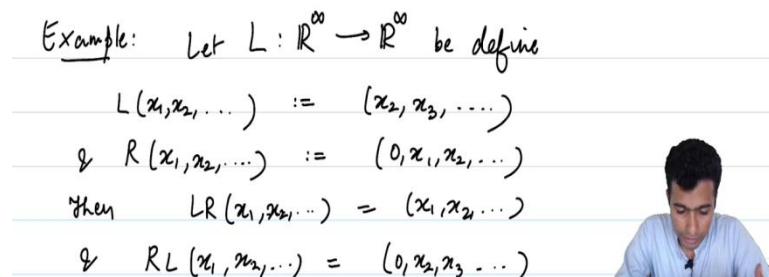 Example: Let L : ℝ^∞ → ℝ^∞ be define
L(x₁,x₂,...) := (x₂, x₃, ....)
& R(x₁,x₂,....) := (0,x₁,x₂,...)
Then LR(x₁,x₂,...) = (x₁,x₂,...)
& RL(x₁,x₂,...) = (0,x₂,x₃ ...)